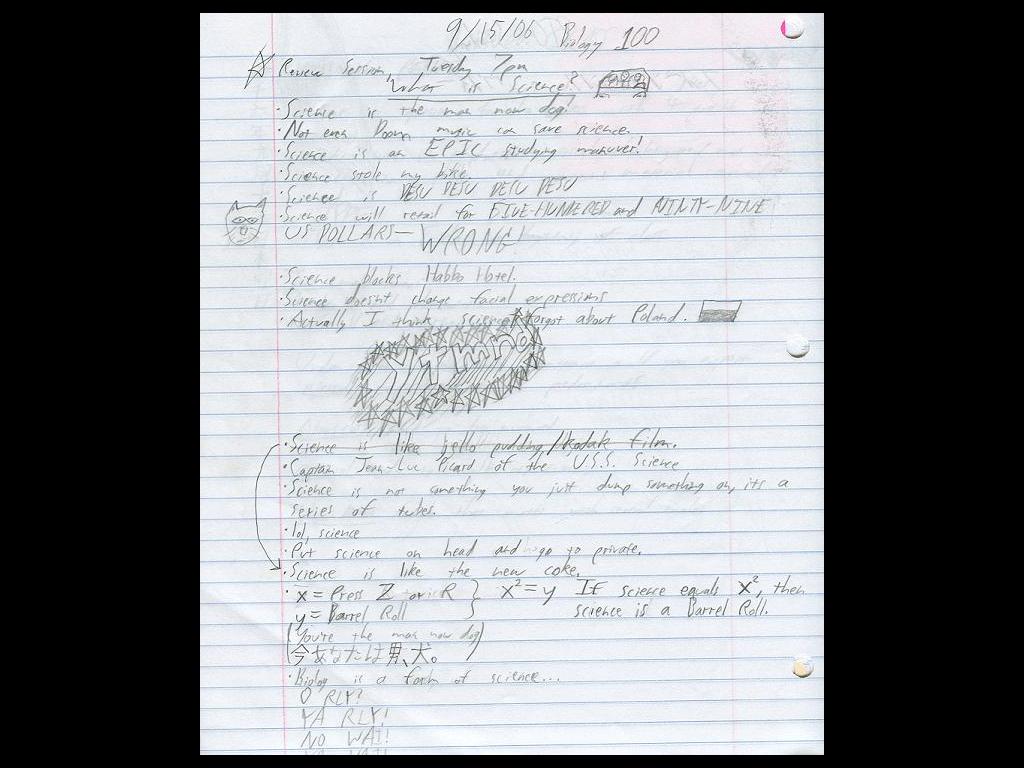 9/15/06 Biology 100
Review Session, Tuesday 7pm
What is Science?
· Science is the man now dog!
· Not even Doom music can save science.
· Science is an EPIC studying manuver!
· Science stole my bike.
· Science is DESU DESU DESU DESU
· Science will retail for FIVE-HUNDERED and NINTY-NINE
US DOLLARS— WRONG!
· Science blocks Habbo Hotel.
· Science doesnt change facial expressions
· Actually I think science forgot about Poland.
Ytmnd
· Science is like jello pudding/kodak film.
· Captain Jean-Luc Picard of the U.S.S. Science
· Science is not something you just dump something on, its a
series of tubes.
· lol, science
· Put science on head and go to private.
· Science is like the new coke.
· x = Press Z or R } x² = y If science equals x², then
y = Barrel Roll } science is a Barrel Roll.
(You're the man now dog)
(今あなたは男、犬。)
· Biology is a form of science...
O RLY?
YA RLY!
NO WAI!
YA WAI!